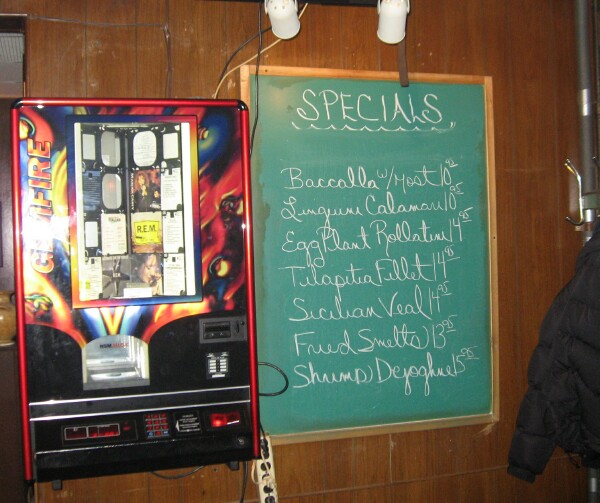 SPECIALS
Baccalla w/ Most 10.95
Linguini Calamari 10.95
EggPlant Rollatini 14.95
Tilapitia Fillet 14.95
Sicilian Veal 14.95
Fried Smelts 13.95
Shrimp Dejoghue 15.95
GEMFIRE
R.E.M.